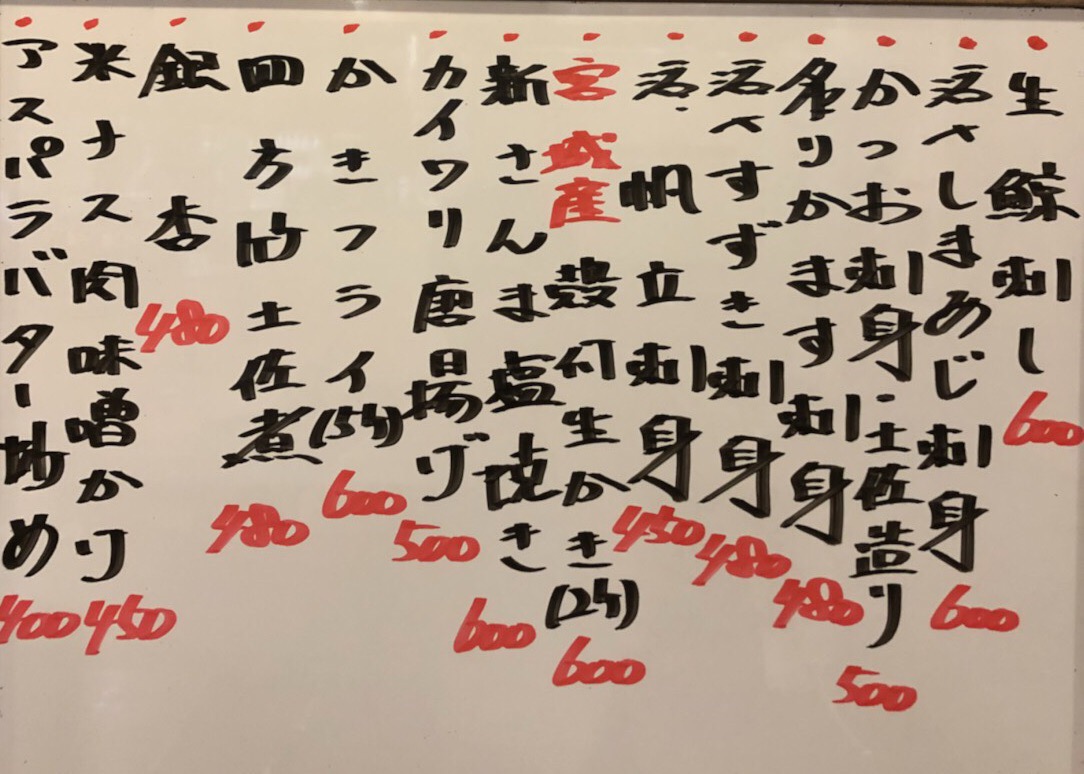 生鯨刺し 600
活〆しまあじ刺身 600
かつお刺身・土佐造り 500
炙りかます刺身 480
活〆すずき刺身 480
活帆立刺身 450
宮城産殻付生かき(2ケ) 600
新さんま塩焼き 600
カイワリ唐揚げ 500
かきフライ(5ケ) 600
四方竹土佐煮 480
銀杏 480
米ナス肉味噌かけ 450
アスパラバター炒め 400